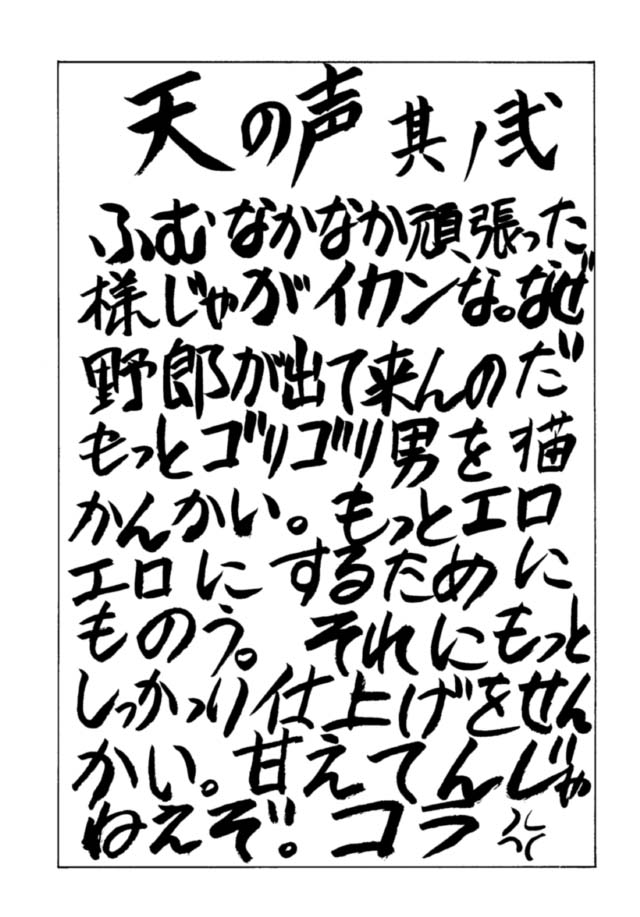 天の声 其ノ弐
ふむなかなか頑張った
様じゃがイカンな。なぜ
野郎が出て来んのだ
もっとゴリゴリ男を描
かんかい。もっとエロ
エロにするために
ものう。それにもっと
しっかり仕上げをせん
かい。甘えてんじゃ
ねえぞ。コラ